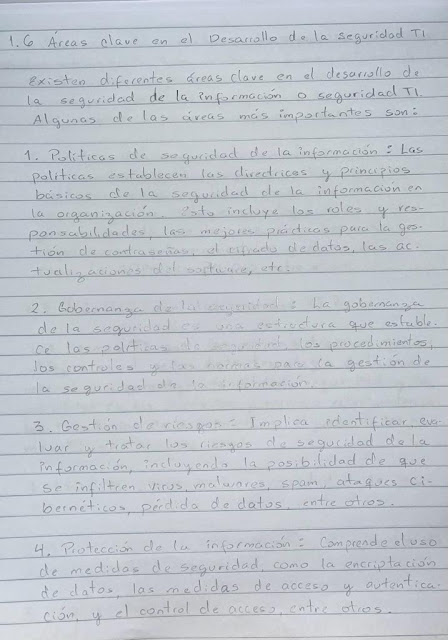 1.6 Áreas clave en el Desarrollo de la seguridad TI
Existen diferentes áreas clave en el desarrollo de
la seguridad de la información o seguridad TI.
Algunas de las áreas más importantes son:
1. Políticas de seguridad de la información: Las
políticas establecen las directrices y principios
básicos de la seguridad de la información en
la organización. Esto incluye los roles y res-
ponsabilidades, las mejores prácticas para la ges-
tión de contraseñas, el cifrado de datos, las ac-
tualizaciones del software, etc.
2. Gobernanza de la seguridad: La gobernanza
de la seguridad es una estructura que estable-
ce las políticas de seguridad, los procedimientos,
los controles y las normas para la gestión de
la seguridad de la información.
3. Gestión de riesgos: Implica identificar, eva-
luar y tratar los riesgos de seguridad de la
información, incluyendo la posibilidad de que
se infiltren virus, malwares, spam, ataques ci-
bernéticos, pérdida de datos, entre otros.
4. Protección de la información: Comprende el uso
de medidas de seguridad, como la encriptación
de datos, las medidas de acceso y autentica-
ción, y el control de acceso, entre otros.